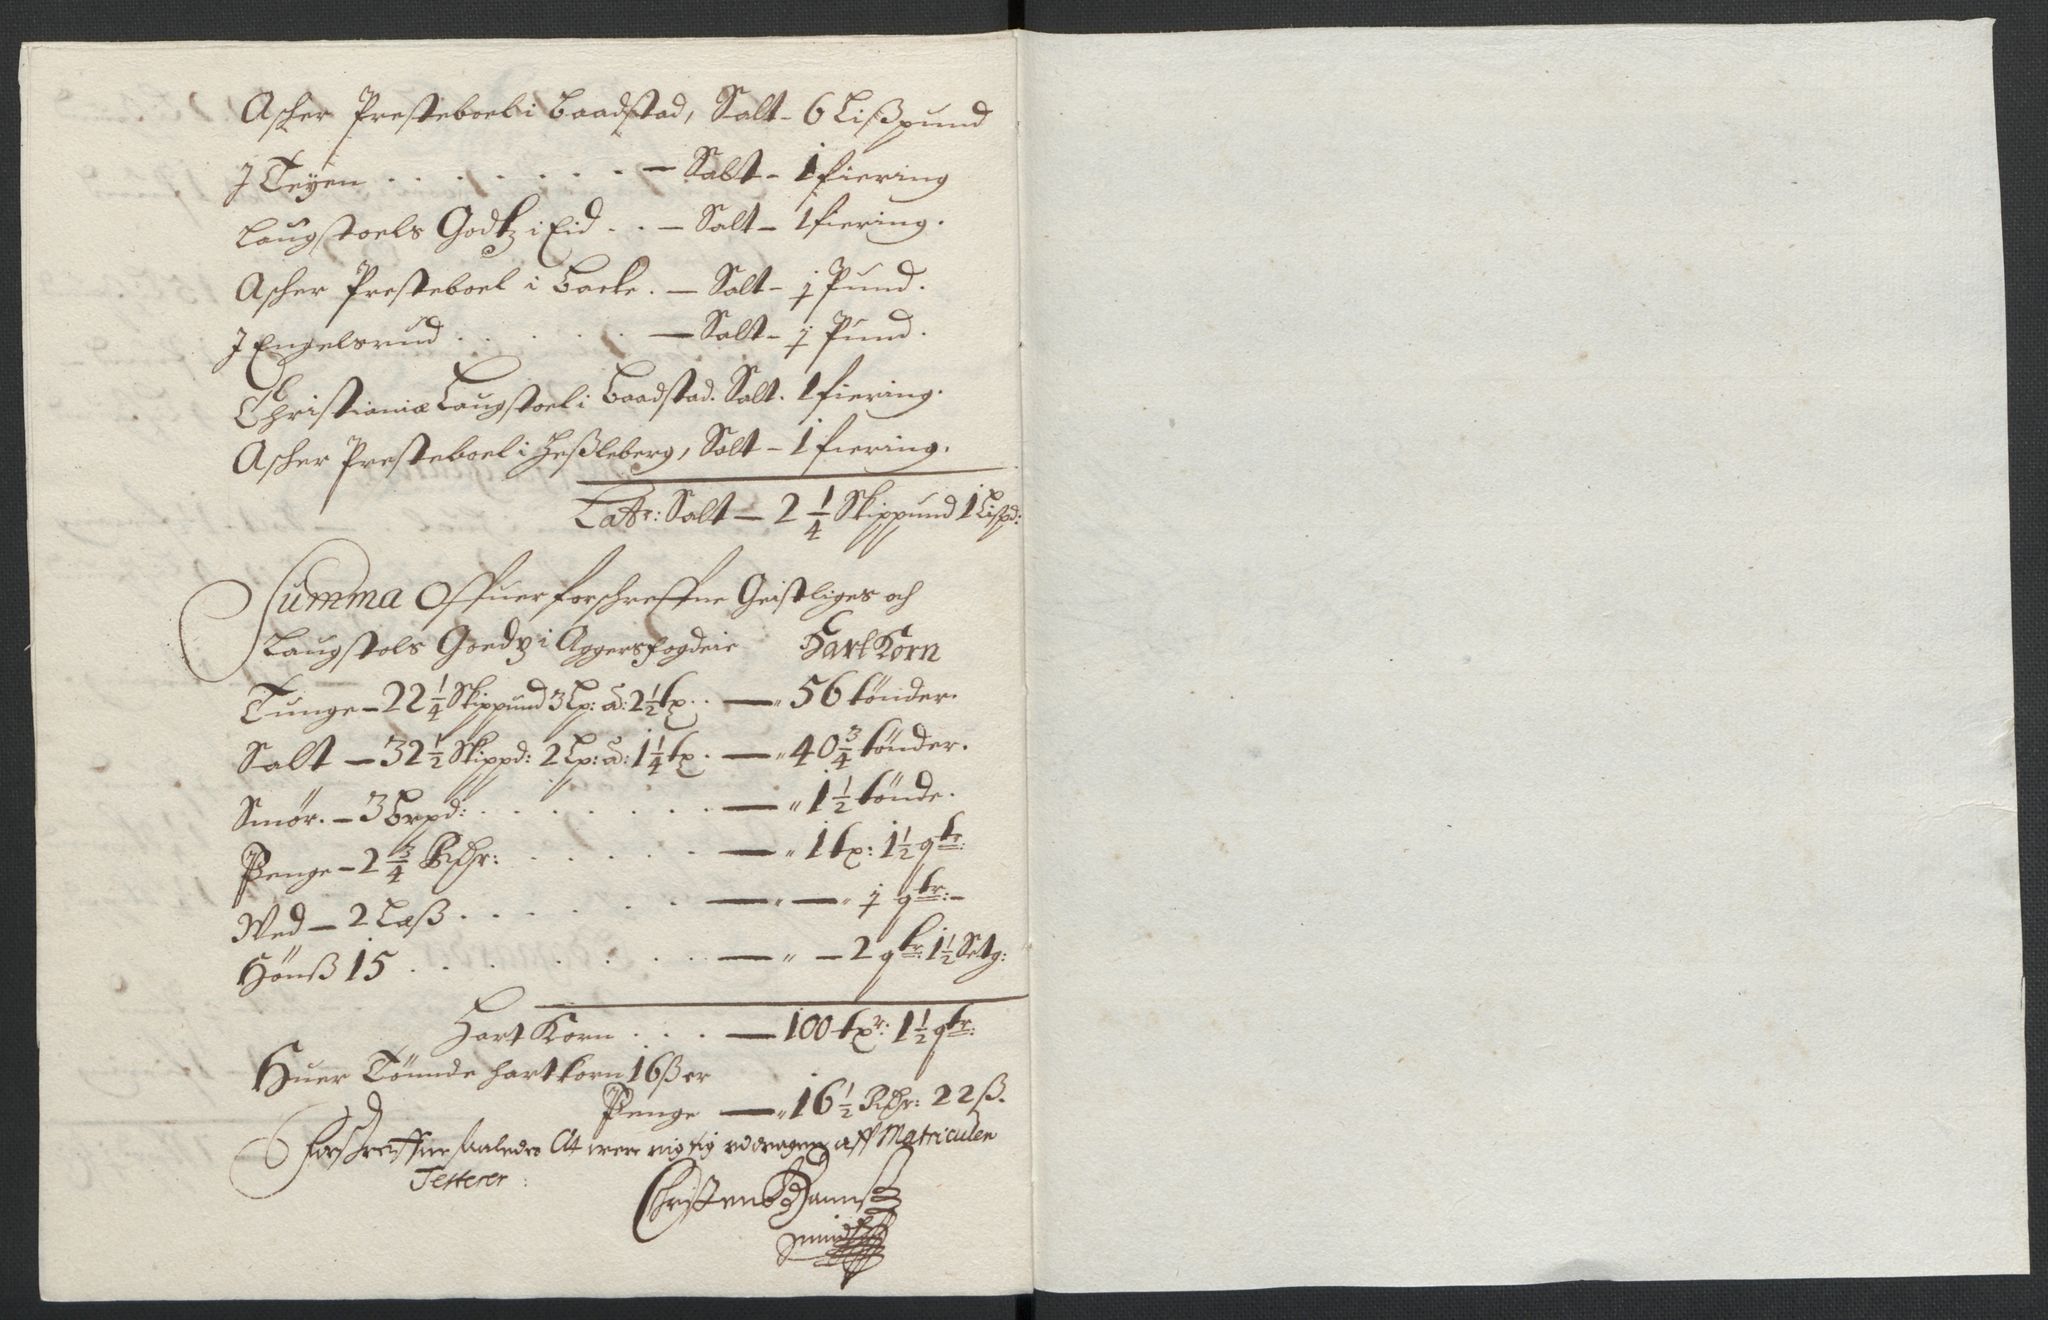 Ascher Presteboel i Baadstad, Salt - 6 Lißpund
J Teÿen . . . . . . . — Salt - 1 fiering
Laugstoels Godtz i Eid . . — Salt - 1 fiering.
Ascher Presteboel i Backe. — Salt - j Pund.
J Engelsrud . . . . . — Salt - j Pund.
Christianiæ Laugstoel i Baadstad. Salt. 1 fiering.
Ascher Presteboel i Heßleberg, Salt - 1 fiering.
Latr: Salt — 2 1/4 Skippund 1 Lispd:
Summa Offuer forschreffne Geistliges och
Laugstols Goedz i Aggersfogderie HartKorn
Tunge - 22 1/4 Skippund 3 Lp: a: 2 1/2 tr. . — „ 56 tönder.
Salt — 32 1/2 Skippd: 2 Lp: a: 1 1/4 tr. — „ 40 3/4 tönder.
Smör. — 3 Brpd: . . . . . . . — „ 1 1/2 tönde.
Penge — 2 3/4 Rdr: . . . . . — „ 1 tr: 1 1/2 qtr:
Wed — 2 Læß . . . . . . — „ — „ j qtr: -
Hönß 15 . . . . . . . . — „ — 2 qtr: 1 1/2 Setg:
Hart Korn . . . — 100 tr: 1 1/2 qtr:
Huer Tönnde hartkorn 16 ß er
Penge — „ 16 1/2 Rdr: 22 ß.
Forschreffne saaledes At were rigtig uddragen aff Matriculen
Testerer:
Christen Hannß